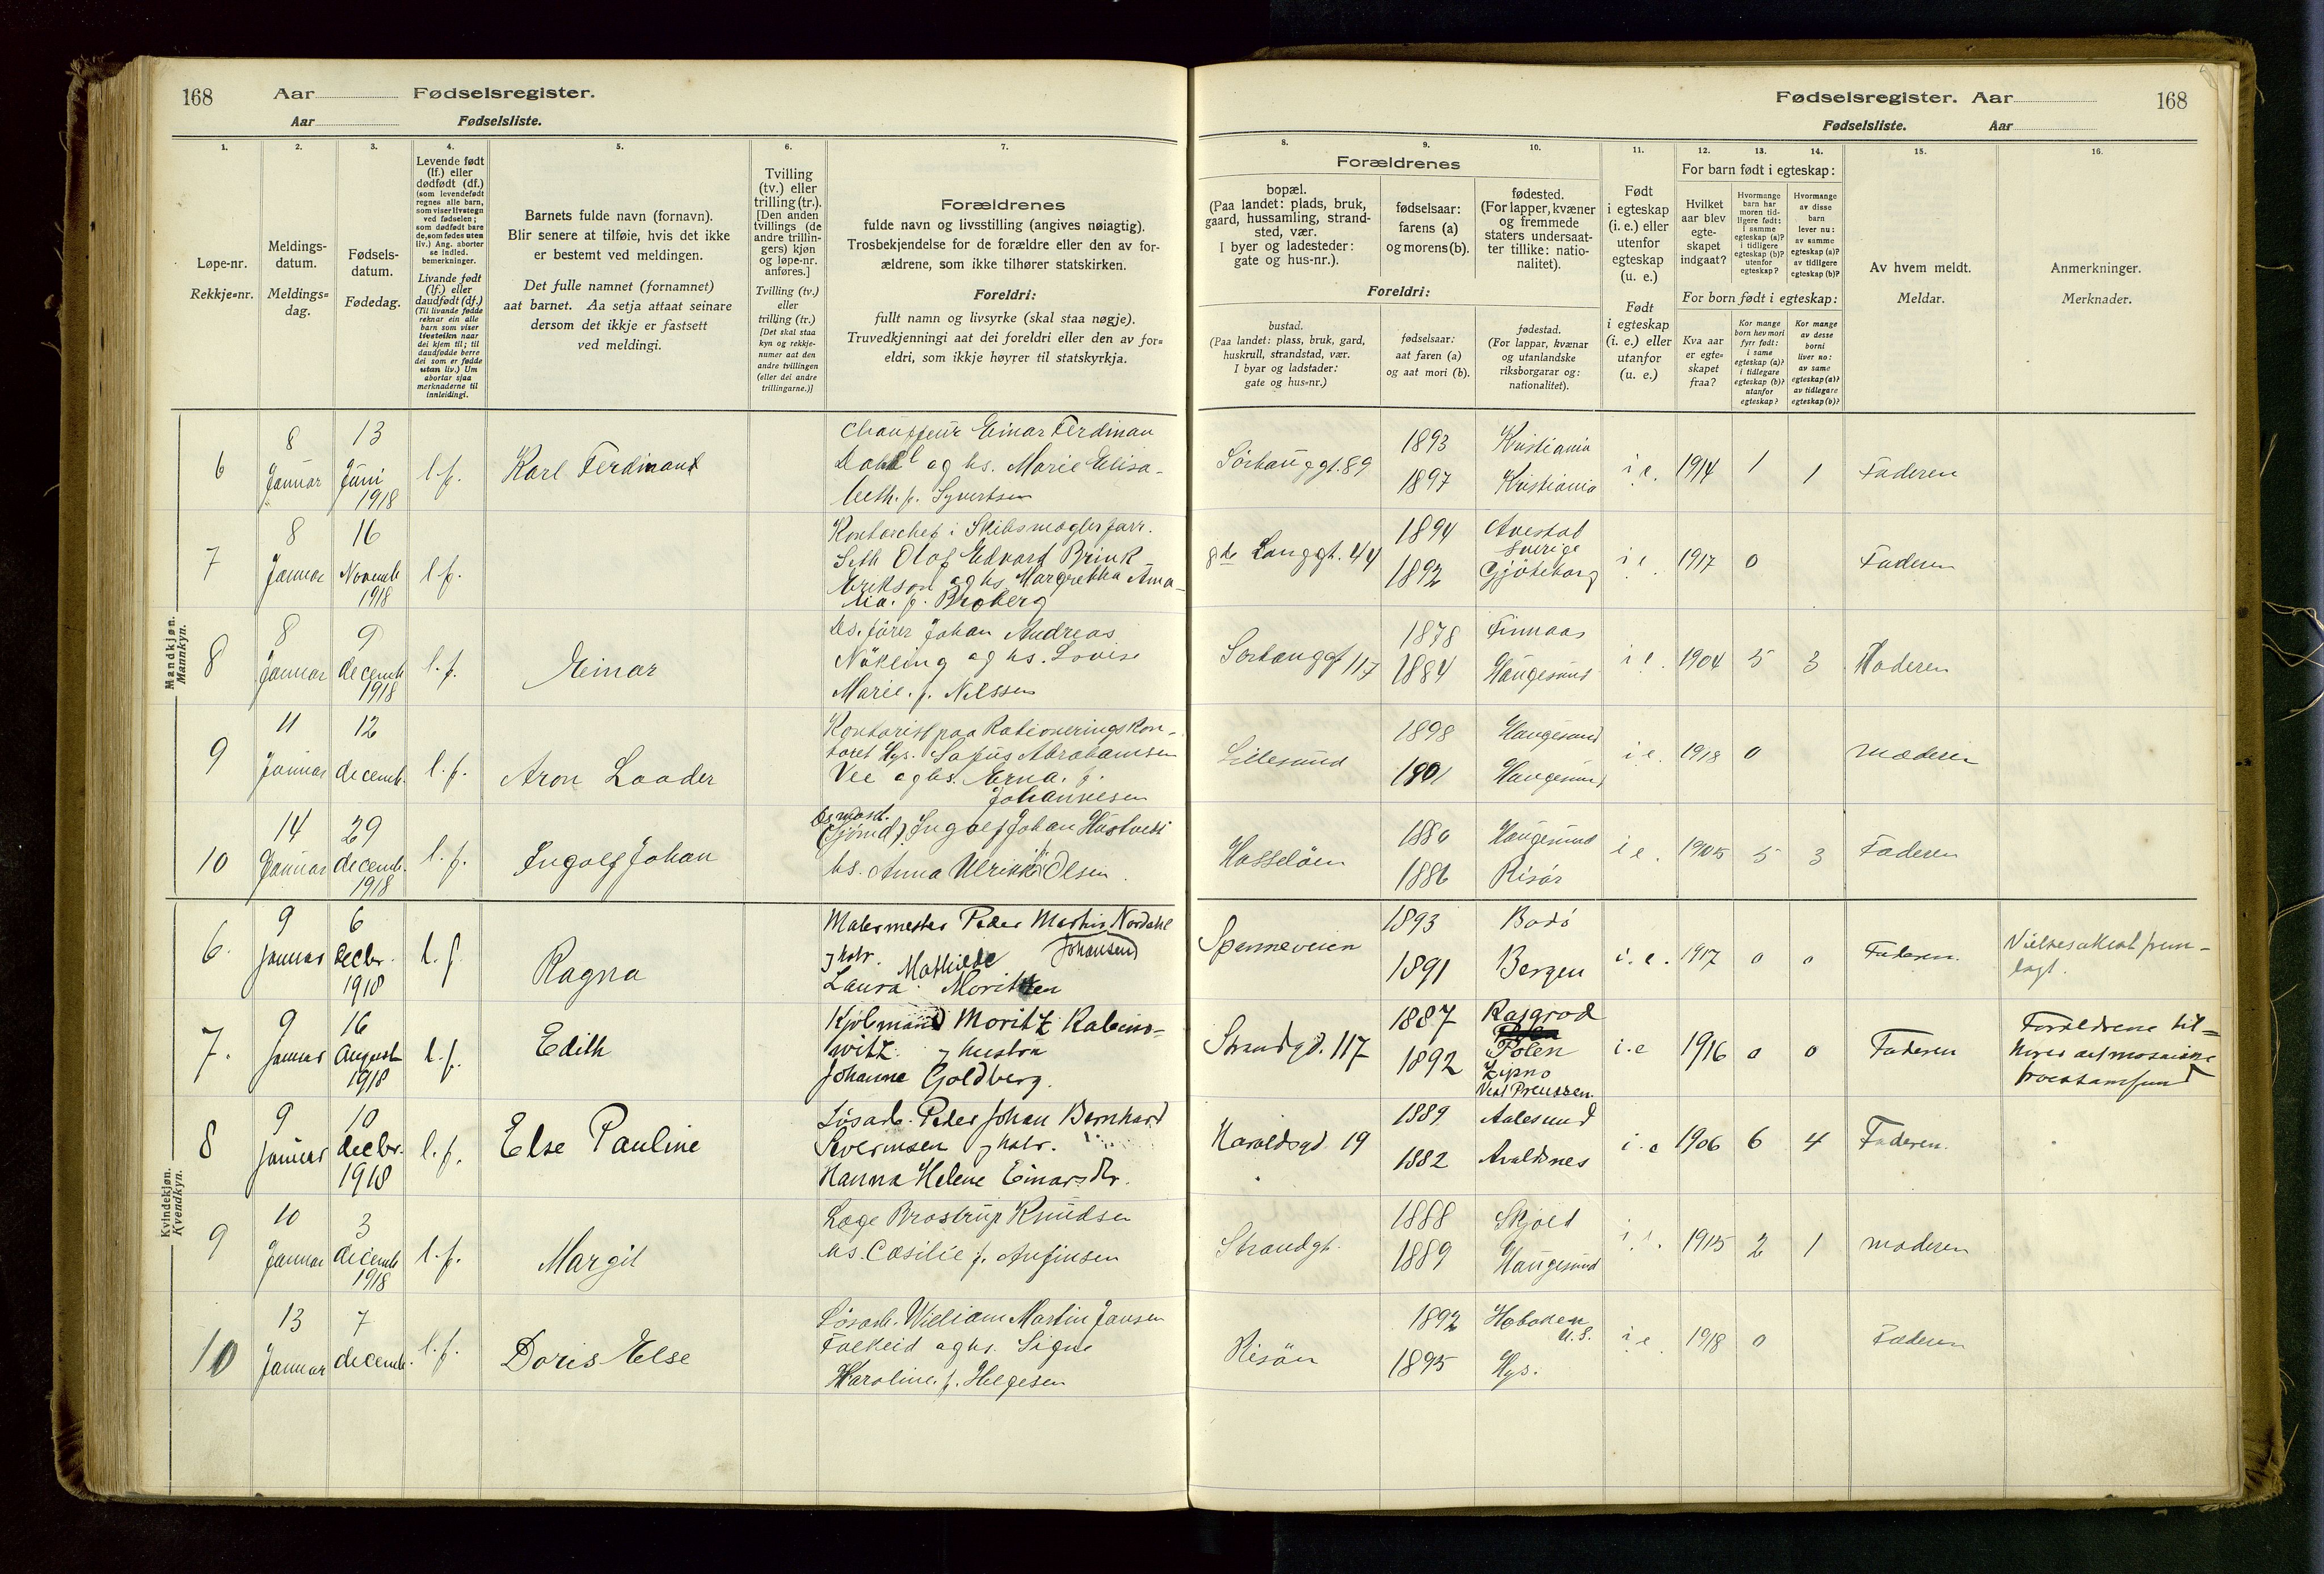 168 Aar Fødselsregister.
Aar Fødselsliste.
1. 2. 3. 4. 5. 6. 7.
Løpe-nr.
Rekkje-nr.
Meldings-
datum.
Meldings-
dag.
Fødsels-
datum.
Fødedag.
Levende født
(lf.) eller
dødfødt (df.)
(som levendefødt
regnes alle barn,
som viser livstegn
ved fødselen;
som dødfødt bare
de, som fødes uten
liv.) Ang. aborter
se indled.
bemerkninger.
Livande født
(lf.) eller
daudfødt (df.)
(Til livande fødde
reknar ein alle
barn som viser
livsteikn naar
dei kjem til; til
daudfødde berre
dei som er fødde
utan liv.) Um
abortar sjaa
merknaderne til
innleidingi.
Barnets fulde navn (fornavn).
Blir senere at tilføie, hvis det ikke
er bestemt ved meldingen.
Det fulle namnet (fornamnet)
aat barnet. Aa setja attaat seinare
dersom det ikkje er fastsett
ved meldingi.
Tvilling
(tv.) eller
trilling (tr.).
[Den anden
tvillings (de
andre trillin-
gers) kjøn
og løpe-nr.
anføres.]
Tvilling (tv.)
eller
trilling (tr.)
[Det skal staa
kyn og rekkje-
numer aat den
andre tvillingen
(eller dei andre
trillingarne.)]
Forældrenes
fulde navn og livsstilling (angives nøiagtig).
Trosbekjendelse for de forældre eller den av for-
ældrene, som ikke tilhører statskirken.
Foreldri:
fullt namn og livsyrke (skal staa nøgje).
Truvedkjenningi aat dei foreldri eller den av for-
eldri, som ikkje høyrer til statskyrkja.
Mandkjøn.
Mannkyn.
6 8 Januar 13 Juni 1918 l.f. Karl Ferdinand
Chauffeur Einar Ferdinan
Dahl og hs. Marie Elisa-
beth. f. Syvertsen
7 8 Januar 16 Novemb 1918 l.f.
Kontorchef i Skibsmæglerforr.
Seth Olof Edvard Brink-
Erikson og hs. Margretha Ama-
lia. f. Broberg
8 8 Januar 9 decemb 1918 l.f. Einar
Ds.fører Johan Andreas
Nökling og hs. Lovise
Marie. f. Nilssen
9 11 Januar 12 decemb. l.f. Aron Laader
Kontorist paa Rationeringskon-
toret Hgs. Sofus Abrahamsen
Vee og hs. Erna. f.
Johannesen
10 14 Januar 29 decemb. 1918 l.f. Ingolf Johan
(Sjömd). Ingolf Johan Hustvedt
hs. Anna Ulrikke Olsen.
Kvindekjøn.
Kvendkyn.
6. 9 januar 6 decbr. 1918 l.f. Ragna
Malermester Peder Martin Nordahl
Johansen
og hstr. Mathilde
Laura Moritzen
7. 9 januar 16 August 1918 l.f. Edith
Kjöbmand Moritz Rabino-
witz og hustru
Johanne Goldberg.
8 9 januar 10 decbr. 1918 l.f. Else Pauline
Løsarb. Peder Johan Bernhard
Sverinsen og hstr.
Hanna Helene Einarsdtr.
9 10 Januar 3 decemb 1918 l.f. Margit
Læge Brostrup Knudsen
hs. Cæsilie f. Anfinsen
10 13 Januar 7 decemb. l.f. Doris Else
Løsarb. William Martin Jansen
Falkeid og hs. Signe
Karoline. f. Helgesen
Fødselsregister. Aar 168
Fødselsliste. Aar
8. 9. 10. 11. 12. 13. 14. 15. 16.
Forældrenes
bopæl.
(Paa landet: plads, bruk,
gaard, hussamling, strand-
sted, vær.
I byer og ladesteder:
gate og hus-nr.).
fødselsaar:
farens (a)
og morens (b).
fødested.
(For lapper, kvæner
og fremmede
staters undersaat-
ter tillike: natio-
nalitet).
Foreldri:
bustad.
(Paa landet: plass, bruk, gard,
huskrull, strandstad, vær.
I byar og ladstader:
gate og hus-nr.)
fødselsaar:
aat faren (a)
og aat mori (b).
fødestad.
(For lappar, kvænar
og utanlandske
riksborgarar og:
nationalitet).
Født
i egteskap
(i. e.) eller
utenfor
egteskap
(u. e.)
Født
i egteskap
(i. e.) eller
utanfor
(u. e.)
For barn født i egteskap:
Hvilket
aar blev
egte-
skapet
indgaat?
Hvormange
barn har
moren tid-
ligere født:
i samme
egteskap (a)?
i tidligere
egteskap (b)?
utenfor
egteskap?
Hvormange
av disse
barn
lever nu:
av samme
egteskap (a)?
av tidligere
egteskap (b)?
For born født i egteskap:
Kva aar
er egte-
skapet
fraa?
Kor mange
born hev mori
fyrr født:
i same
egteskap (a)?
i tidlegare
egteskap (b)?
utanfor
egteskap?
Kor mange
av desse
borni
liver no:
av same
egteskap (a)?
av tidlegare
egteskap (b)?
Av hvem meldt.
Meldar.
Anmerkninger.
Merknader.
Sörhauggt. 89 1893 Kristiania i.e. 1914 1 1 Faderen
1897 Kristiania
gde Langgt. 44 1894 Avestad Sverige i e. 1917 0 Faderen
1892 Gjöteborg
Sörhauggt 117 1878 Finnaas i e. 1904 5 3 Faderen
1884 Haugesund
Lillesund 1898 Haugesund i e. 1918 0 moderen
1901 Haugesund
Hasselöen 1880 Haugesund i e. 1905 5 3 Faderen
1886 Risör
Spanneveien 1893 Bodö i. e. 1917 0 0 Faderen.
1891 Bergen
Vielsesattest frem-
lagt.
Strandgd. 117 1887 Rajgrod Polen i.e 1916 0 0 Faderen
1892 Zypno
Vest Preussen.
Forældrene til-
hører det mosaiske
troessamfund
Haraldsgd. 19 1889 Aalesund i. e 1906 6 4 Faderen.
1882 Avaldsnes
Strandgt. 1888 Skjold i. e. 1915 2 1 moderen
1889 Haugesund
Risöen 1892 Hoboken U.S. i e 1918 0 Faderen
1895 Hgs.